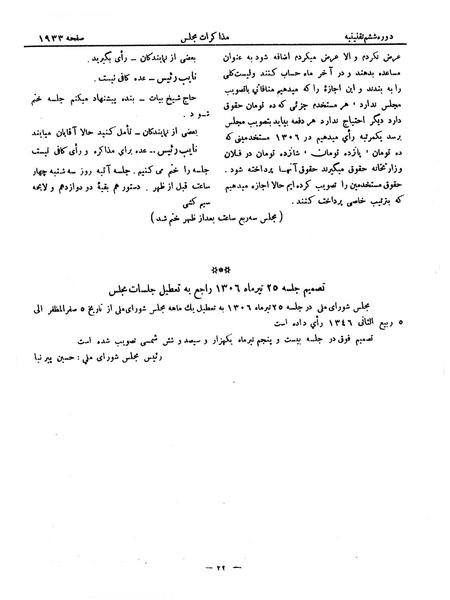 دوره ششم تقنینیه
مذاکرات مجلس
صفحه ۱۹۳۳
عرض نکردم و الا عرض میکردم اضافه شود به عنوان
مساعده بدهند و در آخر ماه حساب کنند ولیست کلی
را به بندند و این اجازهٔ را که میدهیم منافاتی باتصویب
مجلس ندارد ؛ هر مستخدم جزئی که ده تومان حقوق
دارد دیگر احتیاج ندارد هر دفعه بیاید بتصویب مجلس
برسد یکمرتبه رأی میدهیم در ۱۳۰۶ مستخدمینی که
ده تومان ؛ پانزده تومان ؛ شانزده تومان در فلان
وزارتخانه حقوق میگیرند حقوق آنها پرداخته شود .
حقوق مستخدمین را تصویب کرده ایم حالا اجازه میدهیم
که بترتیب خاصی پرداخت کنند .
بعضی از نمایندگان ــ رأی بگیرید .
نایب رئیس ــ عده کافی نیست .
حاج شیخ بیات ــ بنده پیشنهاد میکنم جلسه ختم
شود .
بعضی از نمایندگان ــ تأمل کنید حالا آقایان میآیند
نایب رئیس ــ عده برای مذاکره و رأی کافی نیست
جلسه را ختم می کنیم . جلسه آتیه روز سه شنبه چهار
ساعت قبل از ظهر . دستور هم بقیهٔ دو دوازدهم و لایحه
سیم کشی
( مجلس سه ربع ساعت بعد از ظهر ختم شد )
***
تصمیم جلسه ۲۵ تیرماه ۱۳۰۶ راجع به تعطیل جلسات مجلس
مجلس شورای ملی در جلسه ۲۵ تیرماه ۱۳۰۶ به تعطیل یک ماهه مجلس شورای ملی از تاریخ ۵ صفر المظفر الی
۵ ربیع الثانی ۱۳۴۶ رأی داده است
تصمیم فوق در جلسه بیست و پنجم تیرماه یکهزار و سیصد و شش شمسی تصویب شده است
رئیس مجلس شورای ملی : حسین پیرنیا
— ۲۹ —